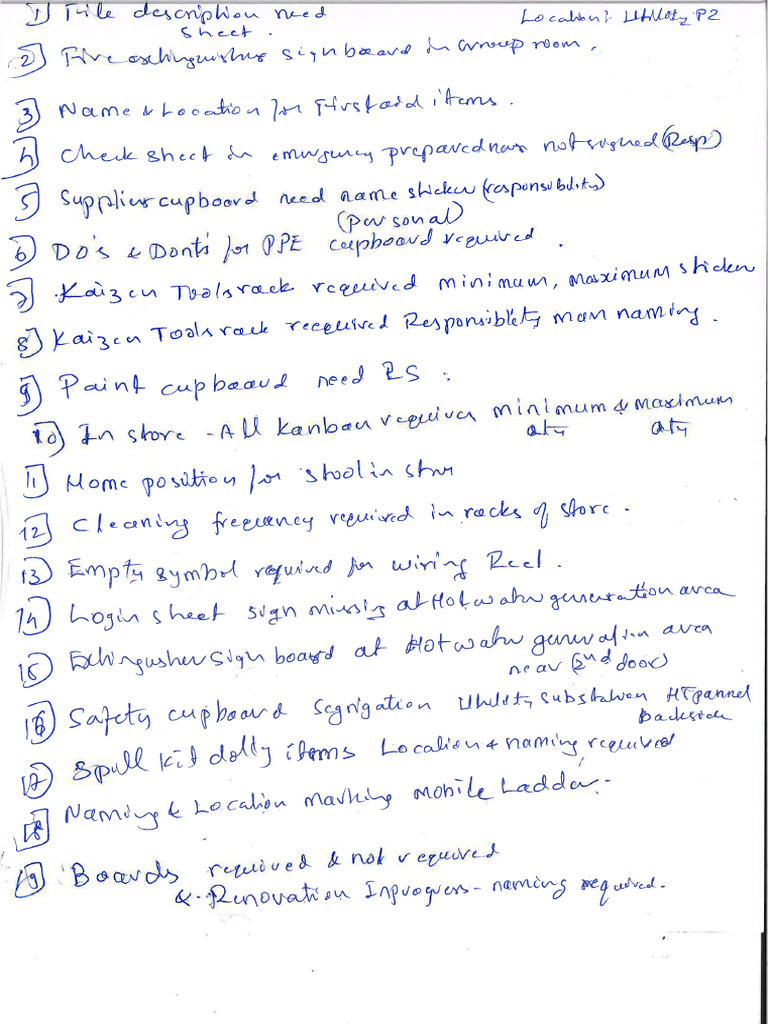 1) File description need Location: Utility P2
sheet.
2) Fire extinguisher sign board in Group room.
3) Name & Location for First aid items.
4) Check sheet in emergency preparedness not signed (Resp)
5) Supplies cupboard need name sticker (responsibility)
(personal)
6) DO's & Dont's for PPE cupboard required.
7) Kaizen Tools rack required minimum, maximum sticker
8) Kaizen Tools rack required Responsiblity man naming.
9) Paint cupboard need
10) In store - All Kanban requires minimum & maximum
qty qty
11) Home position for stool in store
12) Cleaning frequency required in racks of store.
13) Empty symbol required for wiring Reel.
14) Login sheet sign missing at Hot water generation area
15) Extinguisher sign board at Hot water generation area
near (2nd door)
16) Safety cupboard segrigation Utility substation HT pannel
Backside
17) Spill kit dolly items Location & naming required
18) Naming & Location marking mobile Ladder.
19) Boards required & not required
& Renovation Inprogress - naming required.